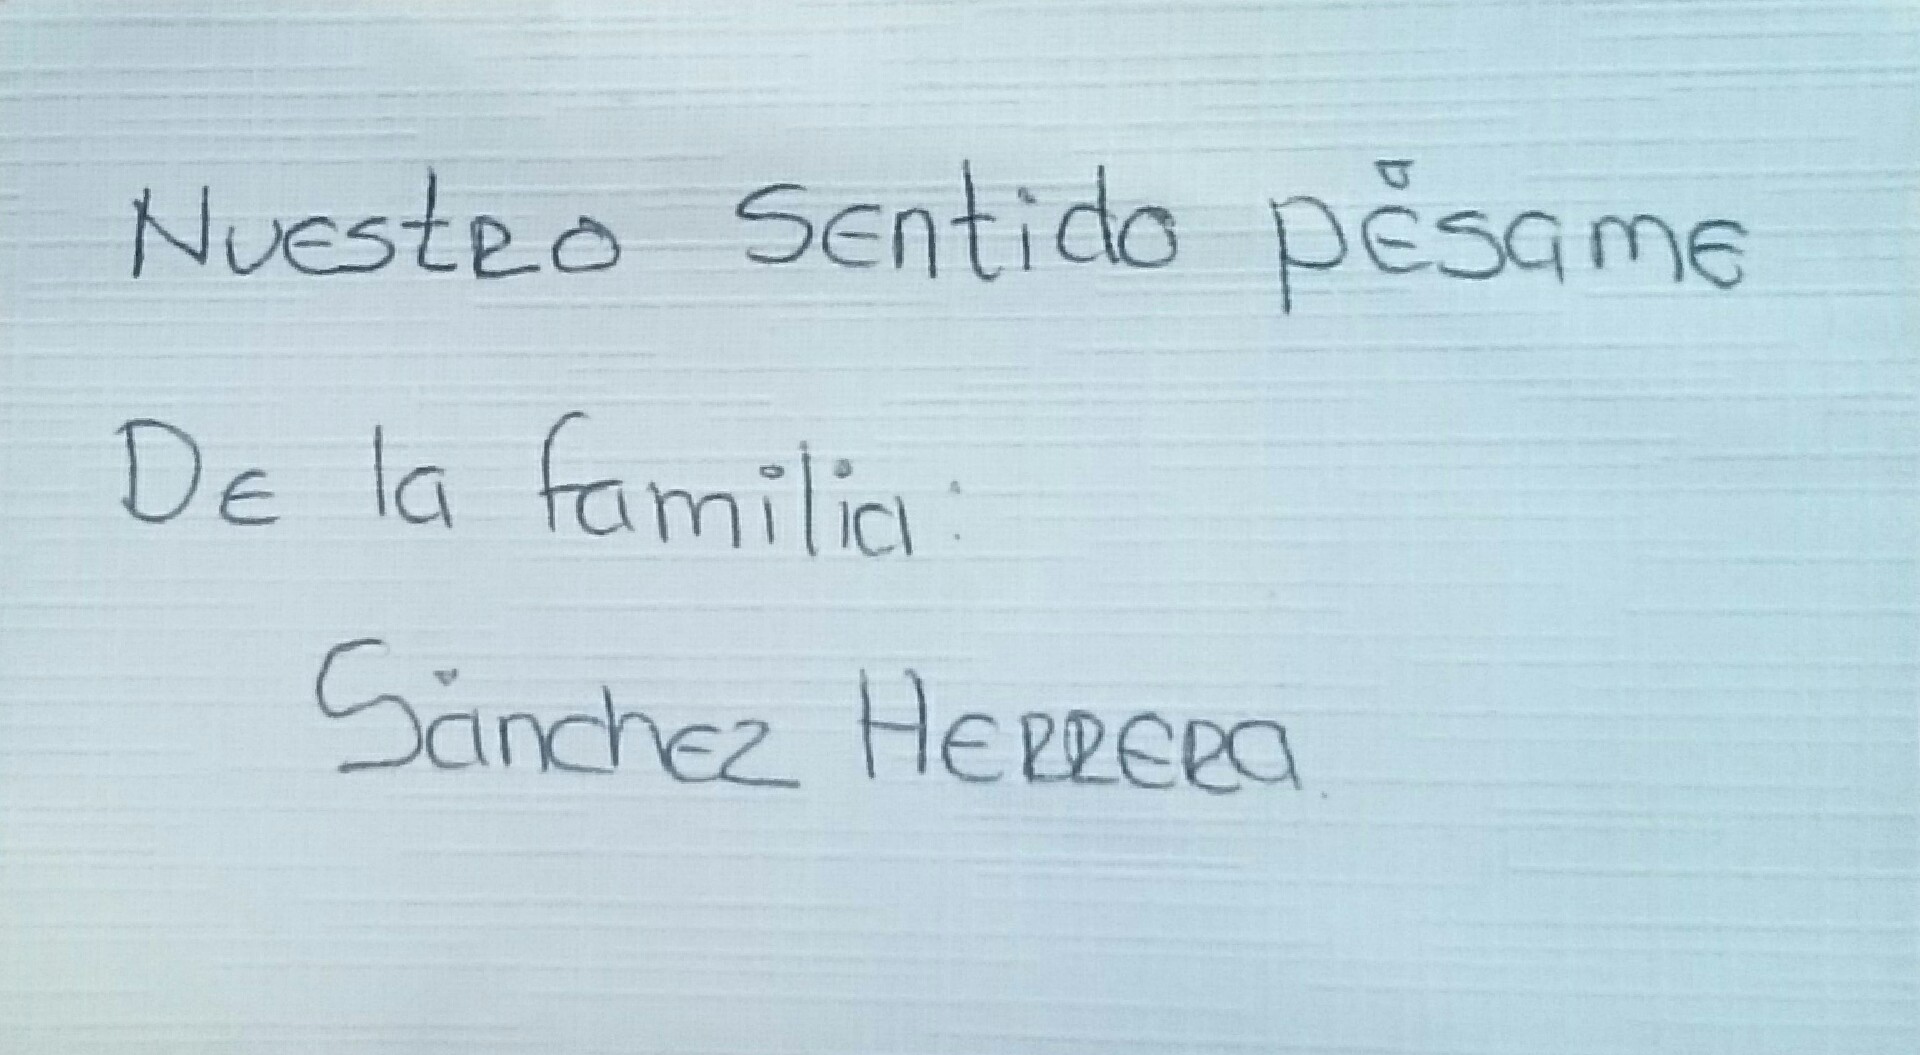 Nuestro Sentido pésame
De la familia:
Sánchez Herrera.